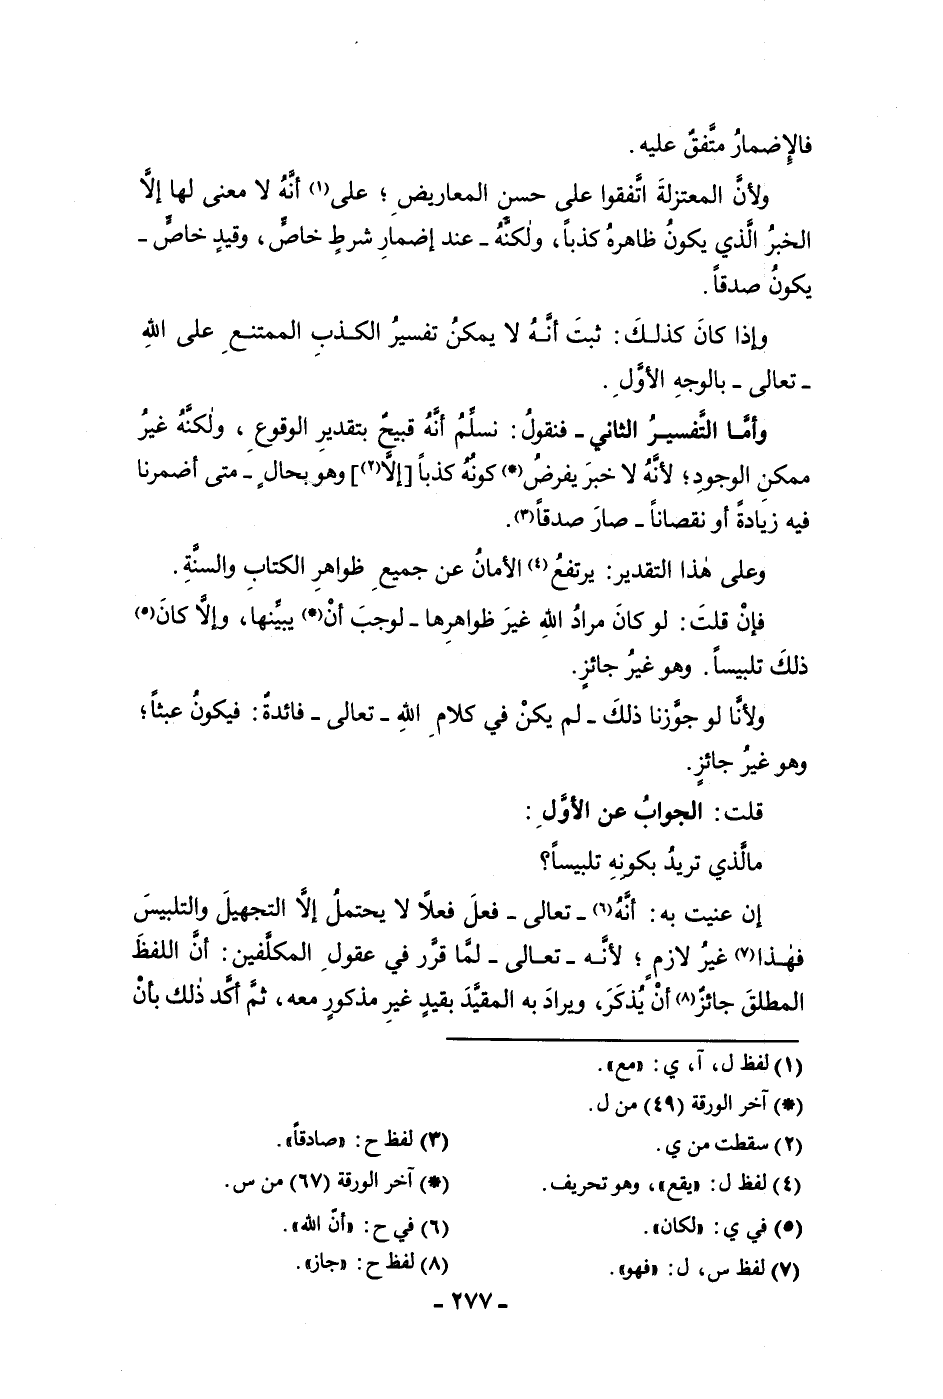 فالإِضمارُ متَّفقٌ عليه.
ولأنَّ المعتزلةَ اتَّفقوا على حسنِ المعاريضِ؛ على(١) أنَّهُ لا معنى لها إلَّا
الخبرُ الَّذي يكونُ ظاهرهُ كذباً، ولٰكنَّهُ ـ عند إضمارِ شرطٍ خاصٍّ، وقيدٍ خاصٍّ ـ
يكونُ صدقاً.
وإذا كانَ كذلكَ: ثبتَ أنَّهُ لا يمكنُ تفسيرُ الكذبِ الممتنعِ على اللهِ
ـ تعالى ـ بالوجهِ الأوَّلِ.
وأمَّا التَّفسيرُ الثاني ـ فنقولُ: نسلِّمُ أنَّهُ قبيحٌ بتقديرِ الوقوعِ، ولٰكنَّهُ غيرُ
ممكنِ الوجودِ؛ لأنَّهُ لا خبرَ يفرضُ(*) كونُهُ كذباً [إلَّا(٢)] وهو بحالٍ ـ متى أضمرنا
فيه زيادةً أو نقصاناً ـ صارَ صدقاً(٣).
وعلى هٰذا التقدير: يرتفعُ(٤) الأمانُ عن جميعِ ظواهرِ الكتابِ والسنَّةِ.
فإنْ قلتَ: لو كانَ مرادُ اللهِ غيرَ ظواهرِها ـ لوجبَ أنْ(*) يبيِّنها، وإلَّا كانَ(٥)
ذلكَ تلبيساً. وهو غيرُ جائزٍ.
ولأنَّا لو جوَّزنا ذلكَ ـ لم يكنْ في كلامِ اللهِ ـ تعالى ـ فائدةٌ: فيكونُ عبثاً؛
وهو غيرُ جائزٍ.
قلت: الجوابُ عن الأوَّلِ:
مالَّذي تريدُ بكونِهِ تلبيساً؟
إن عنيت به: أنَّهُ(٦) ـ تعالى ـ فعلَ فعلًا لا يحتملُ إلَّا التجهيلَ والتلبيسَ
فهٰذا(٧) غيرُ لازمٍ؛ لأنَّه ـ تعالى ـ لمَّا قرَّر في عقولِ المكلَّفين: أنَّ اللفظَ
المطلقَ جائزٌ(٨) أنْ يُذكَرَ، ويرادَ به المقيَّدَ بقيدٍ غيرِ مذكورٍ معه، ثمَّ أكَّد ذٰلك بأنْ
(١) لفظ ل، آ، ي: «مع».
(*) آخر الورقة (٤٩) من ل.
(٢) سقطت من ي. (٣) لفظ ح: «صادقاً».
(٤) لفظ ل: «يقع»، وهو تحريف. (*) آخر الورقة (٦٧) من س.
(٥) في ي: «لكان». (٦) في ح: «أنّ الله».
(٧) لفظ س، ل: «فهو». (٨) لفظ ح: «جاز».
ـ ٢٧٧ ـ